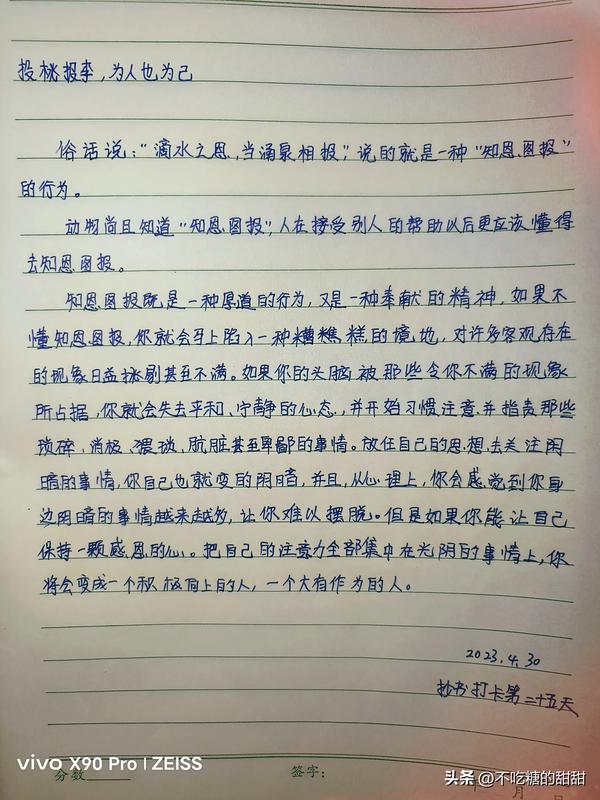 投桃报李，为人也为己
俗话说：“滴水之恩，当涌泉相报”，说的就是一种“知恩图报”
的行为。
动物尚且知道“知恩图报”，人在接受别人的帮助以后更应该懂得
去知恩图报。
知恩图报既是一种厚道的行为，又是一种奉献的精神，如果不
懂知恩图报，你就会马上陷入一种糟糕的境地，对许多客观存在
的现象日益挑剔甚至不满。如果你的头脑被那些令你不满的现象
所占据，你就会失去平和、宁静的心态，并开始习惯注意并指责那些
琐碎、消极、猥琐、肮脏甚至卑鄙的事情。放任自己的思想去关注阴
暗的事情，你自己也就变的阴暗，并且，从心理上，你会感觉到你身
边阴暗的事情越来越多，让你难以摆脱。但是如果你能让自己
保持一颗感恩的心。把自己的注意力全部集中在光阴的事情上，你
将会变成一个积极向上的人，一个大有作为的人。
2023.4.30
抄书打卡第二十五天
vivo X90 Pro | ZEISS
分数
签字：
年 月 日
头条 @不吃糖的甜甜